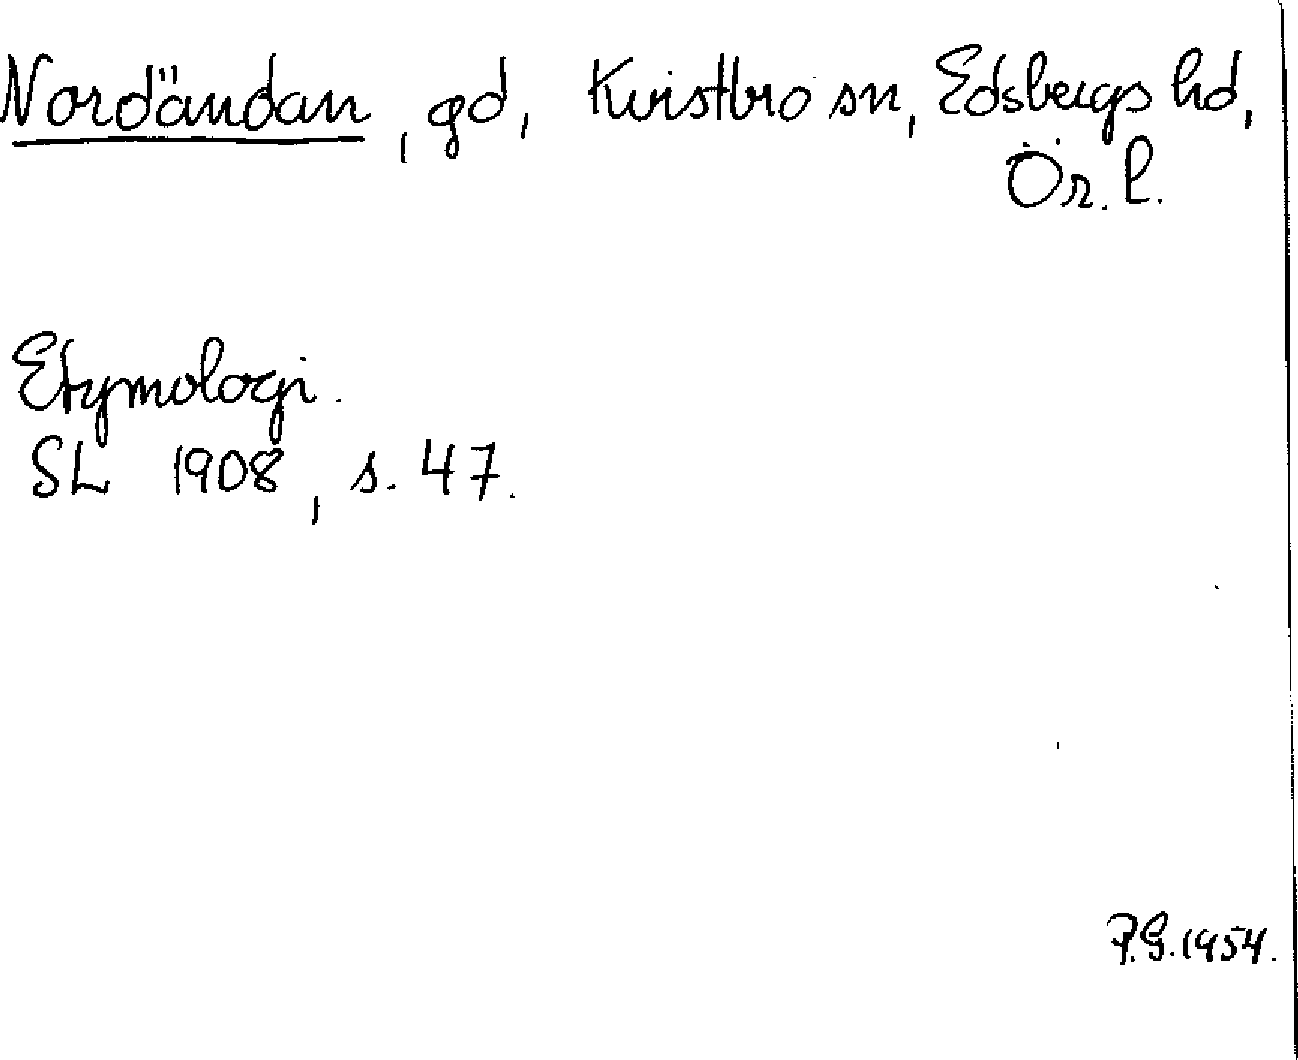 Nordändan, gd, Kvistbro sn, Edsbergs hd,
Ör. l.
Etymologi.
SL 1908, s. 47.
F.G. 1954.